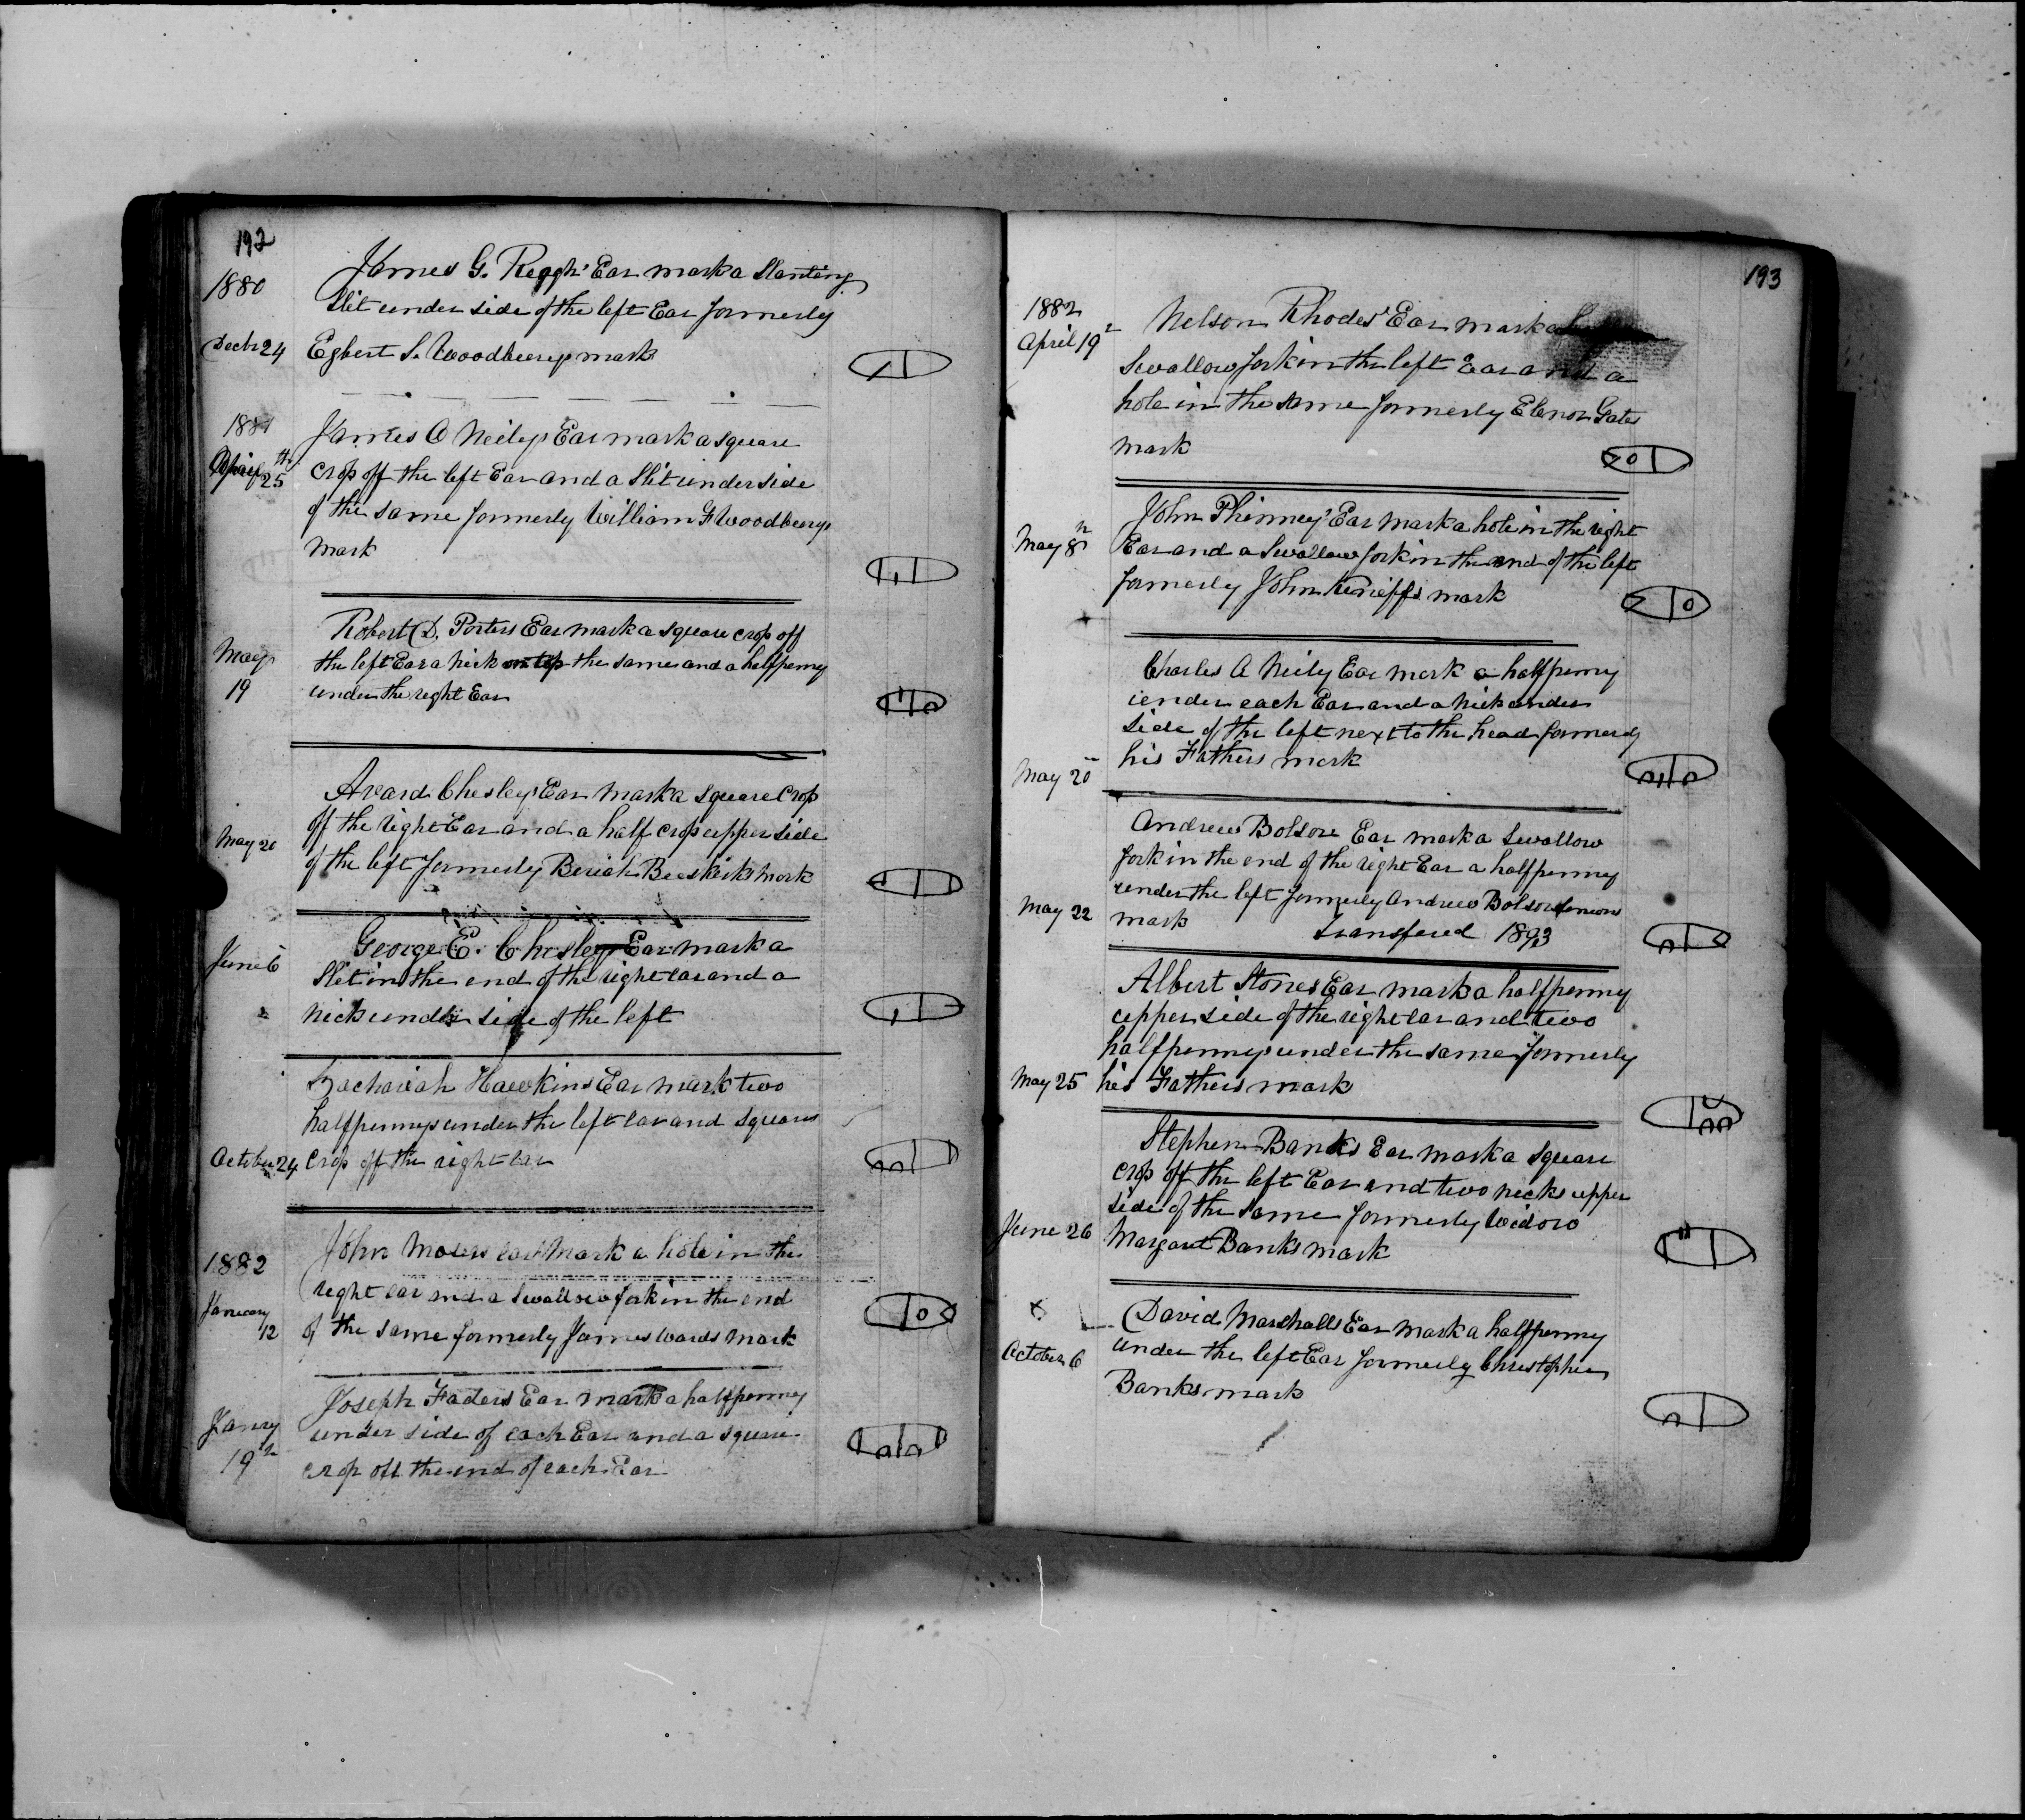 192
1880
James G. Reagh's Ear mark a Slanting
Slit under side of the left Ear formerly
Decbr 24 Egbert S. Woodburys mark
1881
James A Neilys Ear mark a square
25th crop off the left Ear and a Slit under side
of the same formerly William F Woodburys
mark
Robert D. Porters Ear mark a square crop off
May the left Ear a nick the same and a halfpenny
19 under the right Ear
Avard Chesleys Ear mark a square Crop
May 20 off the right Ear and a half crop upper side
of the left formerly Beriah mark
George E. Chesley Ear mark a
June 6 Slit in the end of the right ear and a
nick under side of the left
Zachariah Hawkins Ear mark two
halfpennys under the left ear and square
October 24 crop off the right ear
1882 John Mosers ear Mark a hole in the
January 12 right ear and a Swallow fork in the end
of the same formerly James Wards mark
Joseph Faders Ear mark a halfpenny
Janry under side of each Ear and a square
19th crop off the end of each Ear
193
1882
April 19 Nelson Rhodes' Ear mark a
Swallow fork in the left Ear and a
hole in the same formerly Elenor Gates
mark
John Phinney's Ear mark a hole in the right
May 8th Ear and a Swallow fork in the end of the left
formerly John mark
Charles A Neily Ear mark a halfpenny
under each Ear and a nick under
side of the left next to the head formerly
his Fathers mark
May 20
Andrew Bolsor Ear mark a Swallow
fork in the end of the right Ear a halfpenny
under the left formerly Andrew Bolsor Seniors
May 22 mark Transfered 1893
Albert Stones Ear mark a halfpenny
upper side of the right ear and two
halfpennys under the same formerly
May 25 his Fathers mark
Stephen Banks Ear mark a square
crop off the left Ear and two nicks upper
side of the same formerly Widow
June 26 Margaret Banks mark
David Marshalls Ear mark a halfpenny
October 6 under the left Ear formerly Christopher
Banks mark